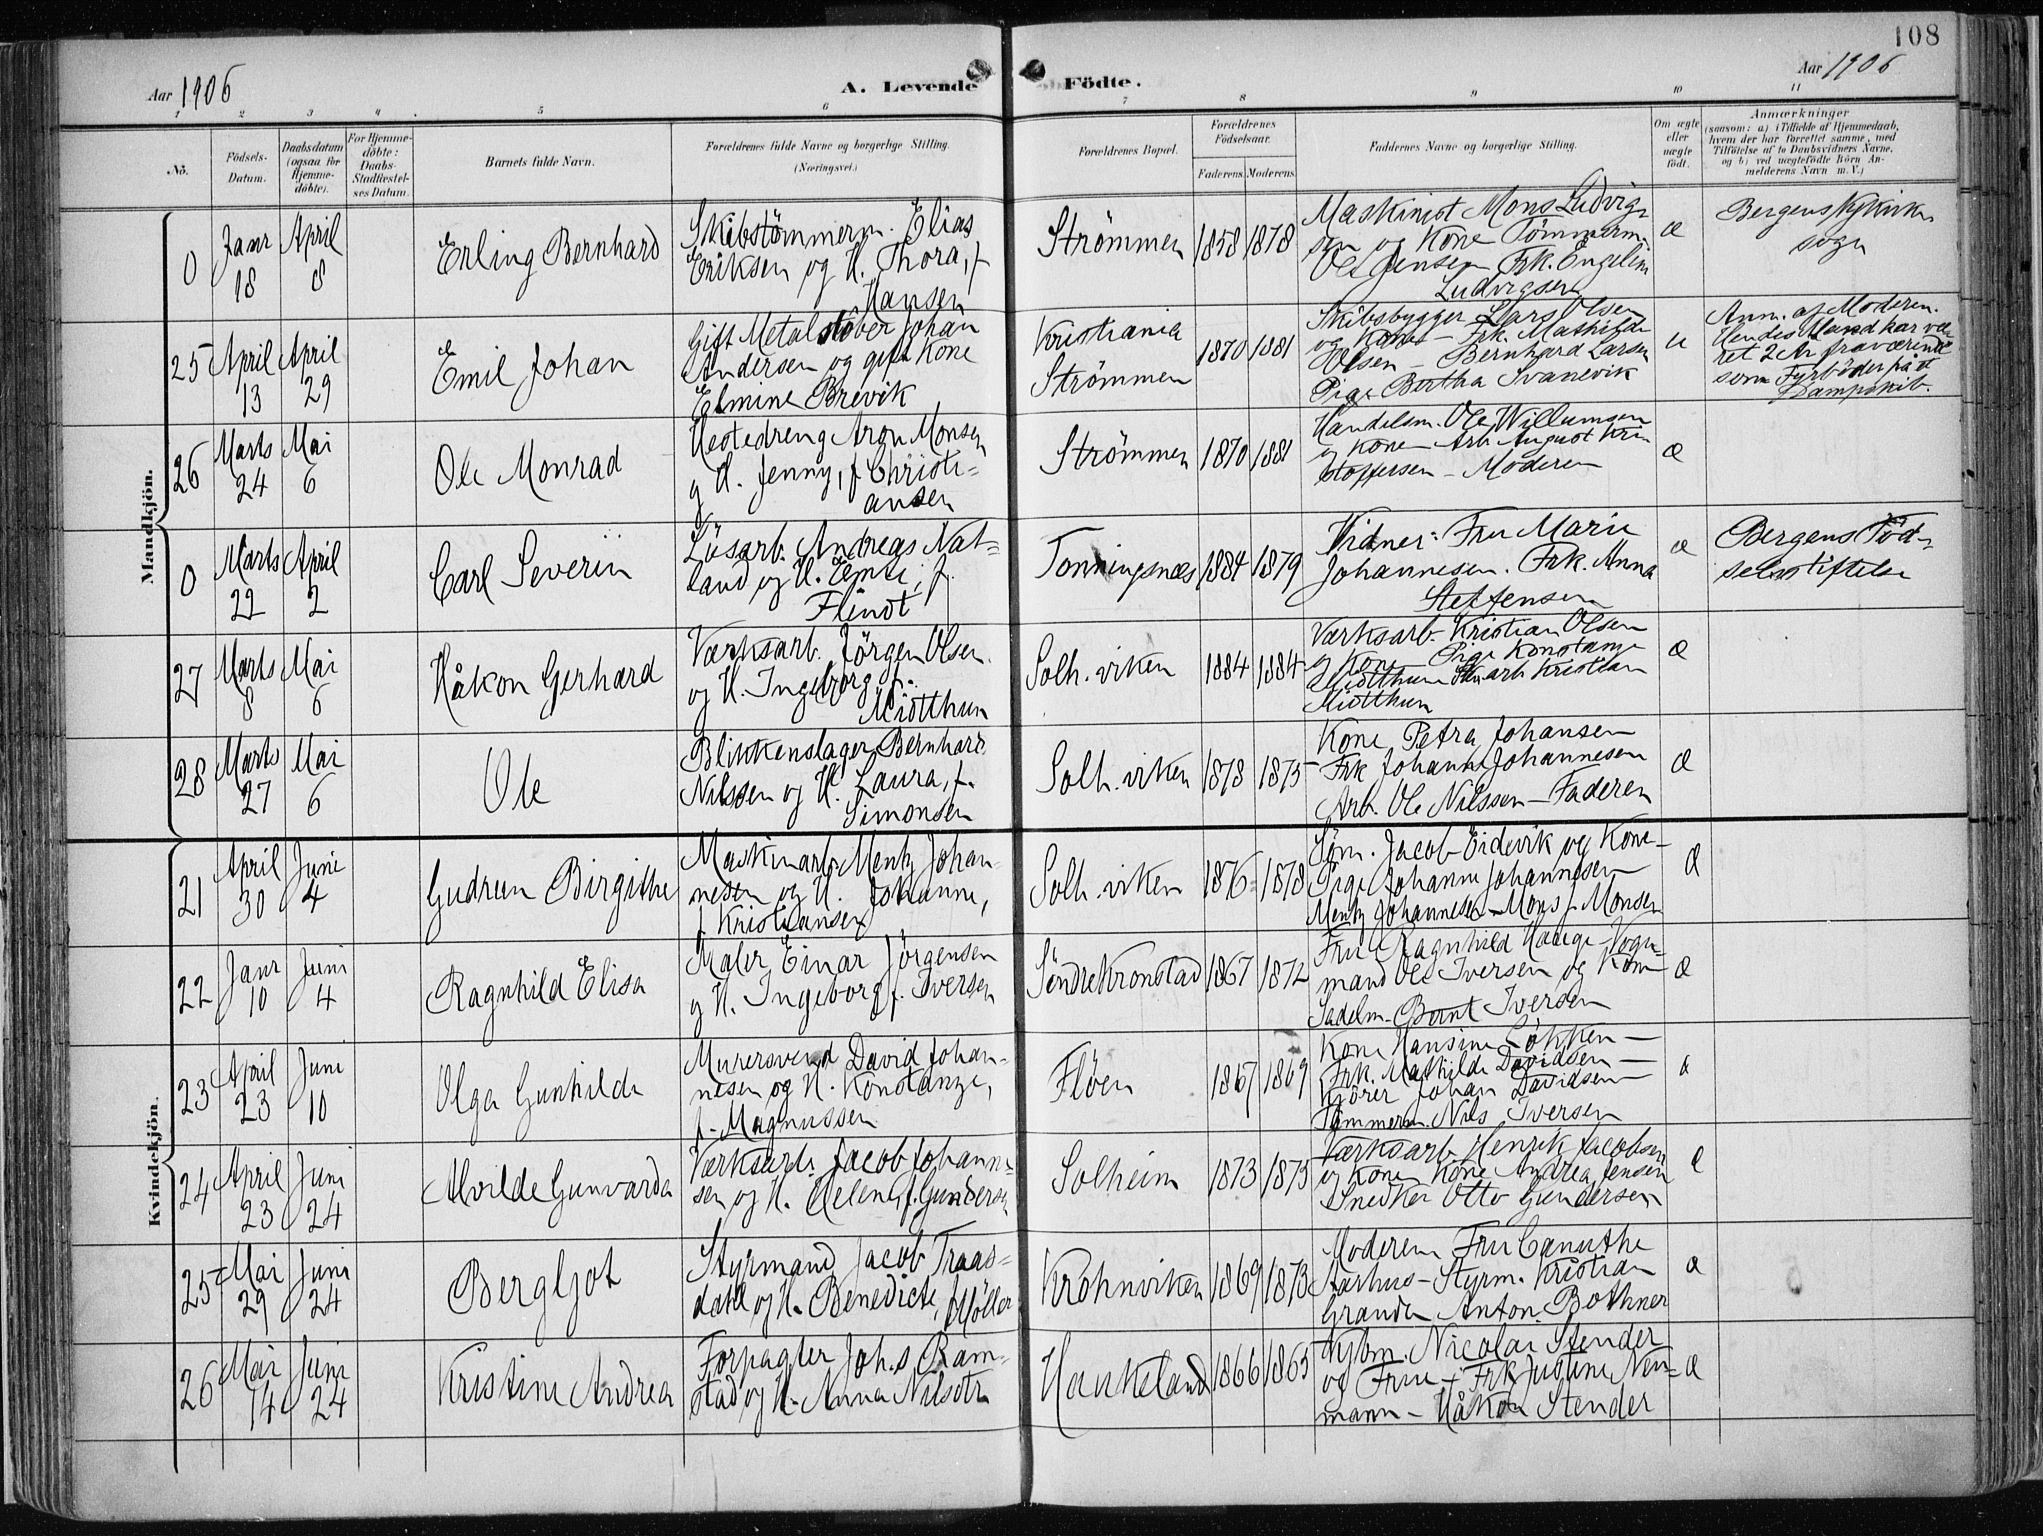 108
Aar 1906
A. Levende Födte.
Aar 1906
1 2 3 4 5 6 7 8 9 10 11
No.
Födsels-Datum.
Daabsdatum (ogsaa for Hjemme-döbte).
For Hjemme-döbte: Daabs-Stadfæstel-ses Datum.
Barnets fulde Navn.
Forældrenes fulde Navne og borgerlige Stilling. (Næringsvei.)
Forældrenes Bopæl.
Forældrenes Födselsaar.
Faderens. Moderens.
Faddernes Navne og borgerlige Stilling.
Om ægte eller uægte født.
Anmærkninger
(saasom: a) i Tilfælde af Hjemmedaab,
hvem der har forrettet samme, med
Tilföielse af to Daabsvidners Navne,
og b) ved uægtefödte Börn An-
melderens Navn m. V.)
Mandkjön.
0 Janr 18 April 8
Erling Bernhard
Skibstömmerm. Elias
Eriksen og H. Thora, f.
Hansen
Strömmen 1858 1878
Maskinist Mons Ludvig-
sen og Kone Tömmerm.
Ole Jensen Frk. Engelin
Ludvigsen
æ
Bergens
sogn
25 April 13 April 29
Emil Johan
Gift Metalstöber Johan
Andersen og gift Kone
Elmine Brevik
Kristiania
Strömmen
1870 1881
Skibsbygger Lars Olsen
og Kone - Frk. Mathilde
Olsen - Bernhard Larsen
Pige Bertha Svanevik
u
Anm. af Moderen.
Hendes Mand har væ-
ret 2 År fraværende
som Fyrböder på et
Dampskib.
26 Marts 24 Mai 6
Ole Monrad
Hestedreng Aron Monsen
og H. Jenny, f. Christi-
ansen
Strömmen 1870 1881
Handelsm. Ole Willumsen
og Kone - Arb. August Kri-
stoffersen - Moderen
æ
0 Marts 22 April 2
Carl Severin
Lösarb. Andreas Nat-
land og H. Emte, f.
Flindt
Tonningsnæs 1884 1879
Vidner: Fru Marie
Johannesen. Frk. Anna
Steffensen
æ
Bergens Föd-
selsstiftelse
27 Marts 8 Mai 6
Håkon Gerhard
Værksarb. Jörgen Olsen
og H. Ingeborg f.
Midtthun
Solh. viken 1884 1884
Værksarb. Kristian Olsen
og Kone Pige Konstanze
Midtthun arb Kristian
Midtthun
æ
28 Marts 27 Mai 6
Ole
Blikkenslager Bernhard
Nilssen og H. Laura, f.
Simonsen
Solh. viken 1878 1875
Kone Petra Johansen
Frk Johanne Johannesen
Arb. Ole Nilssen - Faderen
æ
Kvindekjön.
21 April 30 Juni 4
Gudrun Birgithe
Maskinarb. Mentz Johan-
nesen og H. Johanne,
f. Kristiansen
Solh. viken 1876 1878
Söm. Jacob Eidevik og Kone -
Pige Johanne Johannesen
Mentz Johannesen - Mons J. Monsen
æ
22 Janr 10 Juni 4
Ragnhild Elisa
Maler Einar Jörgensen
og H. Ingeborg f. Iversen
Söndre Kronstad 1867 1872
Fru Ragnhild Hauge - Vogn-
mand Ole Iversen og Kone -
Sadelm. Bernt Iversen
æ
23 April 23 Juni 10
Olga Gunhilda
Murersvend David Johan-
nesen og H. Konstanze,
f. Magnussen
Flöen 1867 1869
Kone Hansine Løkken -
Frk. Mathilde Davidsen -
Kjörer Johan Davidsen -
Tömmerm. Nils Iversen
æ
24 April 23 Juni 24
Alvilde Gunvarda
Værksarb. Jacob Johanne-
sen og H. Helene, f. Gundersen
Solheim 1873 1875
Værksarb. Henrik Jacobsen
og Kone Kone Andrea Jensen
Snedker Otto Gundersen
25 Mai 29 Juni 24
Bergljot
Styrmand Jacob Traas-
dahl og H. Benedicte, f. Möller
Krohnviken 1869 1873
Moderen Fru Canuthe
Aarhus - Styrm. Kristian
Grande Anton Bothner
æ
26 Mai 14 Juni 24
Kristine Andrea
Forpagter Johs Ram-
stad og H. Anna Nilsdtr
Haukeland 1866 1865
Kjöbm. Nicolai Stender
og Frue - Frk Justine Neu-
mann - Håkon Stender
æ